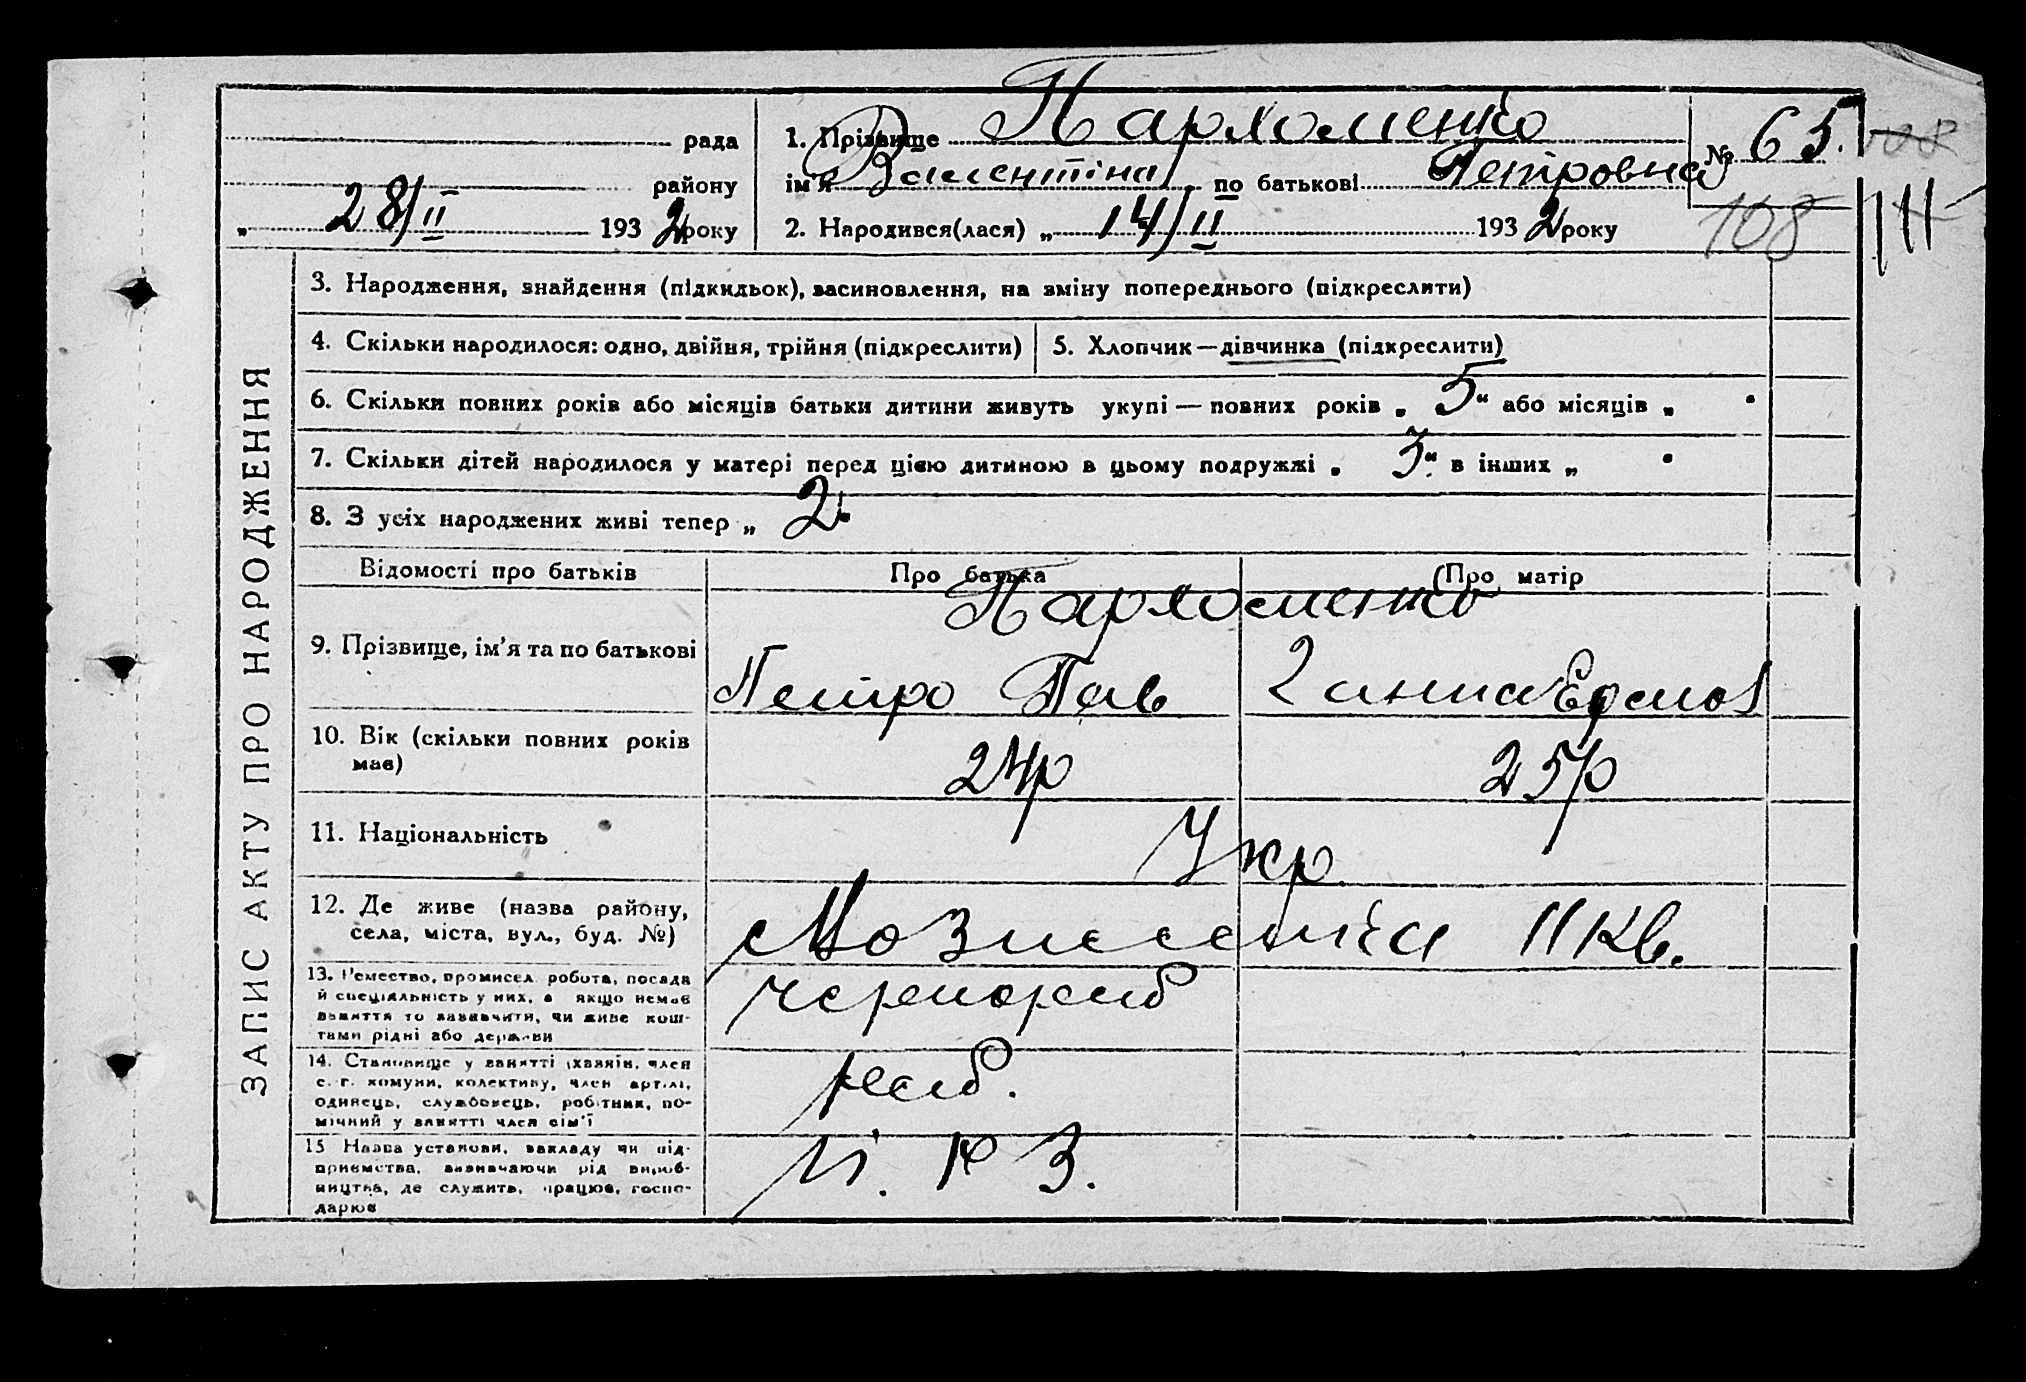 рада
району
„ 28/II 1932 року
1. Прізвище Пархоменко
ім'я Валентіна по батькові Петровна
2. Народився(лася) „ 14/II 1932 року
№ 65.
108
108
111
ЗАПИС АКТУ ПРО НАРОДЖЕННЯ
3. Народження, знайдення (підкидьок), засиновлення, на зміну попереднього (підкреслити)
4. Скільки народилося: одно, двійня, трійня (підкреслити)
5. Хлопчик—дівчинка (підкреслити)
6. Скільки повних років або місяців батьки дитини живуть укупі — повних років „ 5 “ або місяців „
7. Скільки дітей народилося у матері перед цією дитиною в цьому подружжі „ 3 “ в інших „
8. З усіх народжених живі тепер „ 2
Відомості про батьків
Про батька
Про матір
9. Прізвище, ім'я та по батькові
Пархоменко
Петро Пав
Ганна
10. Вік (скільки повних років
має)
24р
25р
11. Національність
Укр.
12. Де живе (назва району,
села, міста, вул., буд. №)
11 кв.
13. Ремество, промисел робота, посада
й спеціяльність у них, а якщо немає
заняття то зазначити, чи живе кош-
тами рідні або держави
чернораб
14. Становище у занятті (хазяїн, член
с. г. комуни, колективу, член артілі,
одинець, службовець, робітник, по-
мічний у занятті член сім'ї
раб.
15 Назва установи, закладу чи під-
приємства, зазначаючи рід вироб-
ництва, де служить, працює, госпо-
дарює